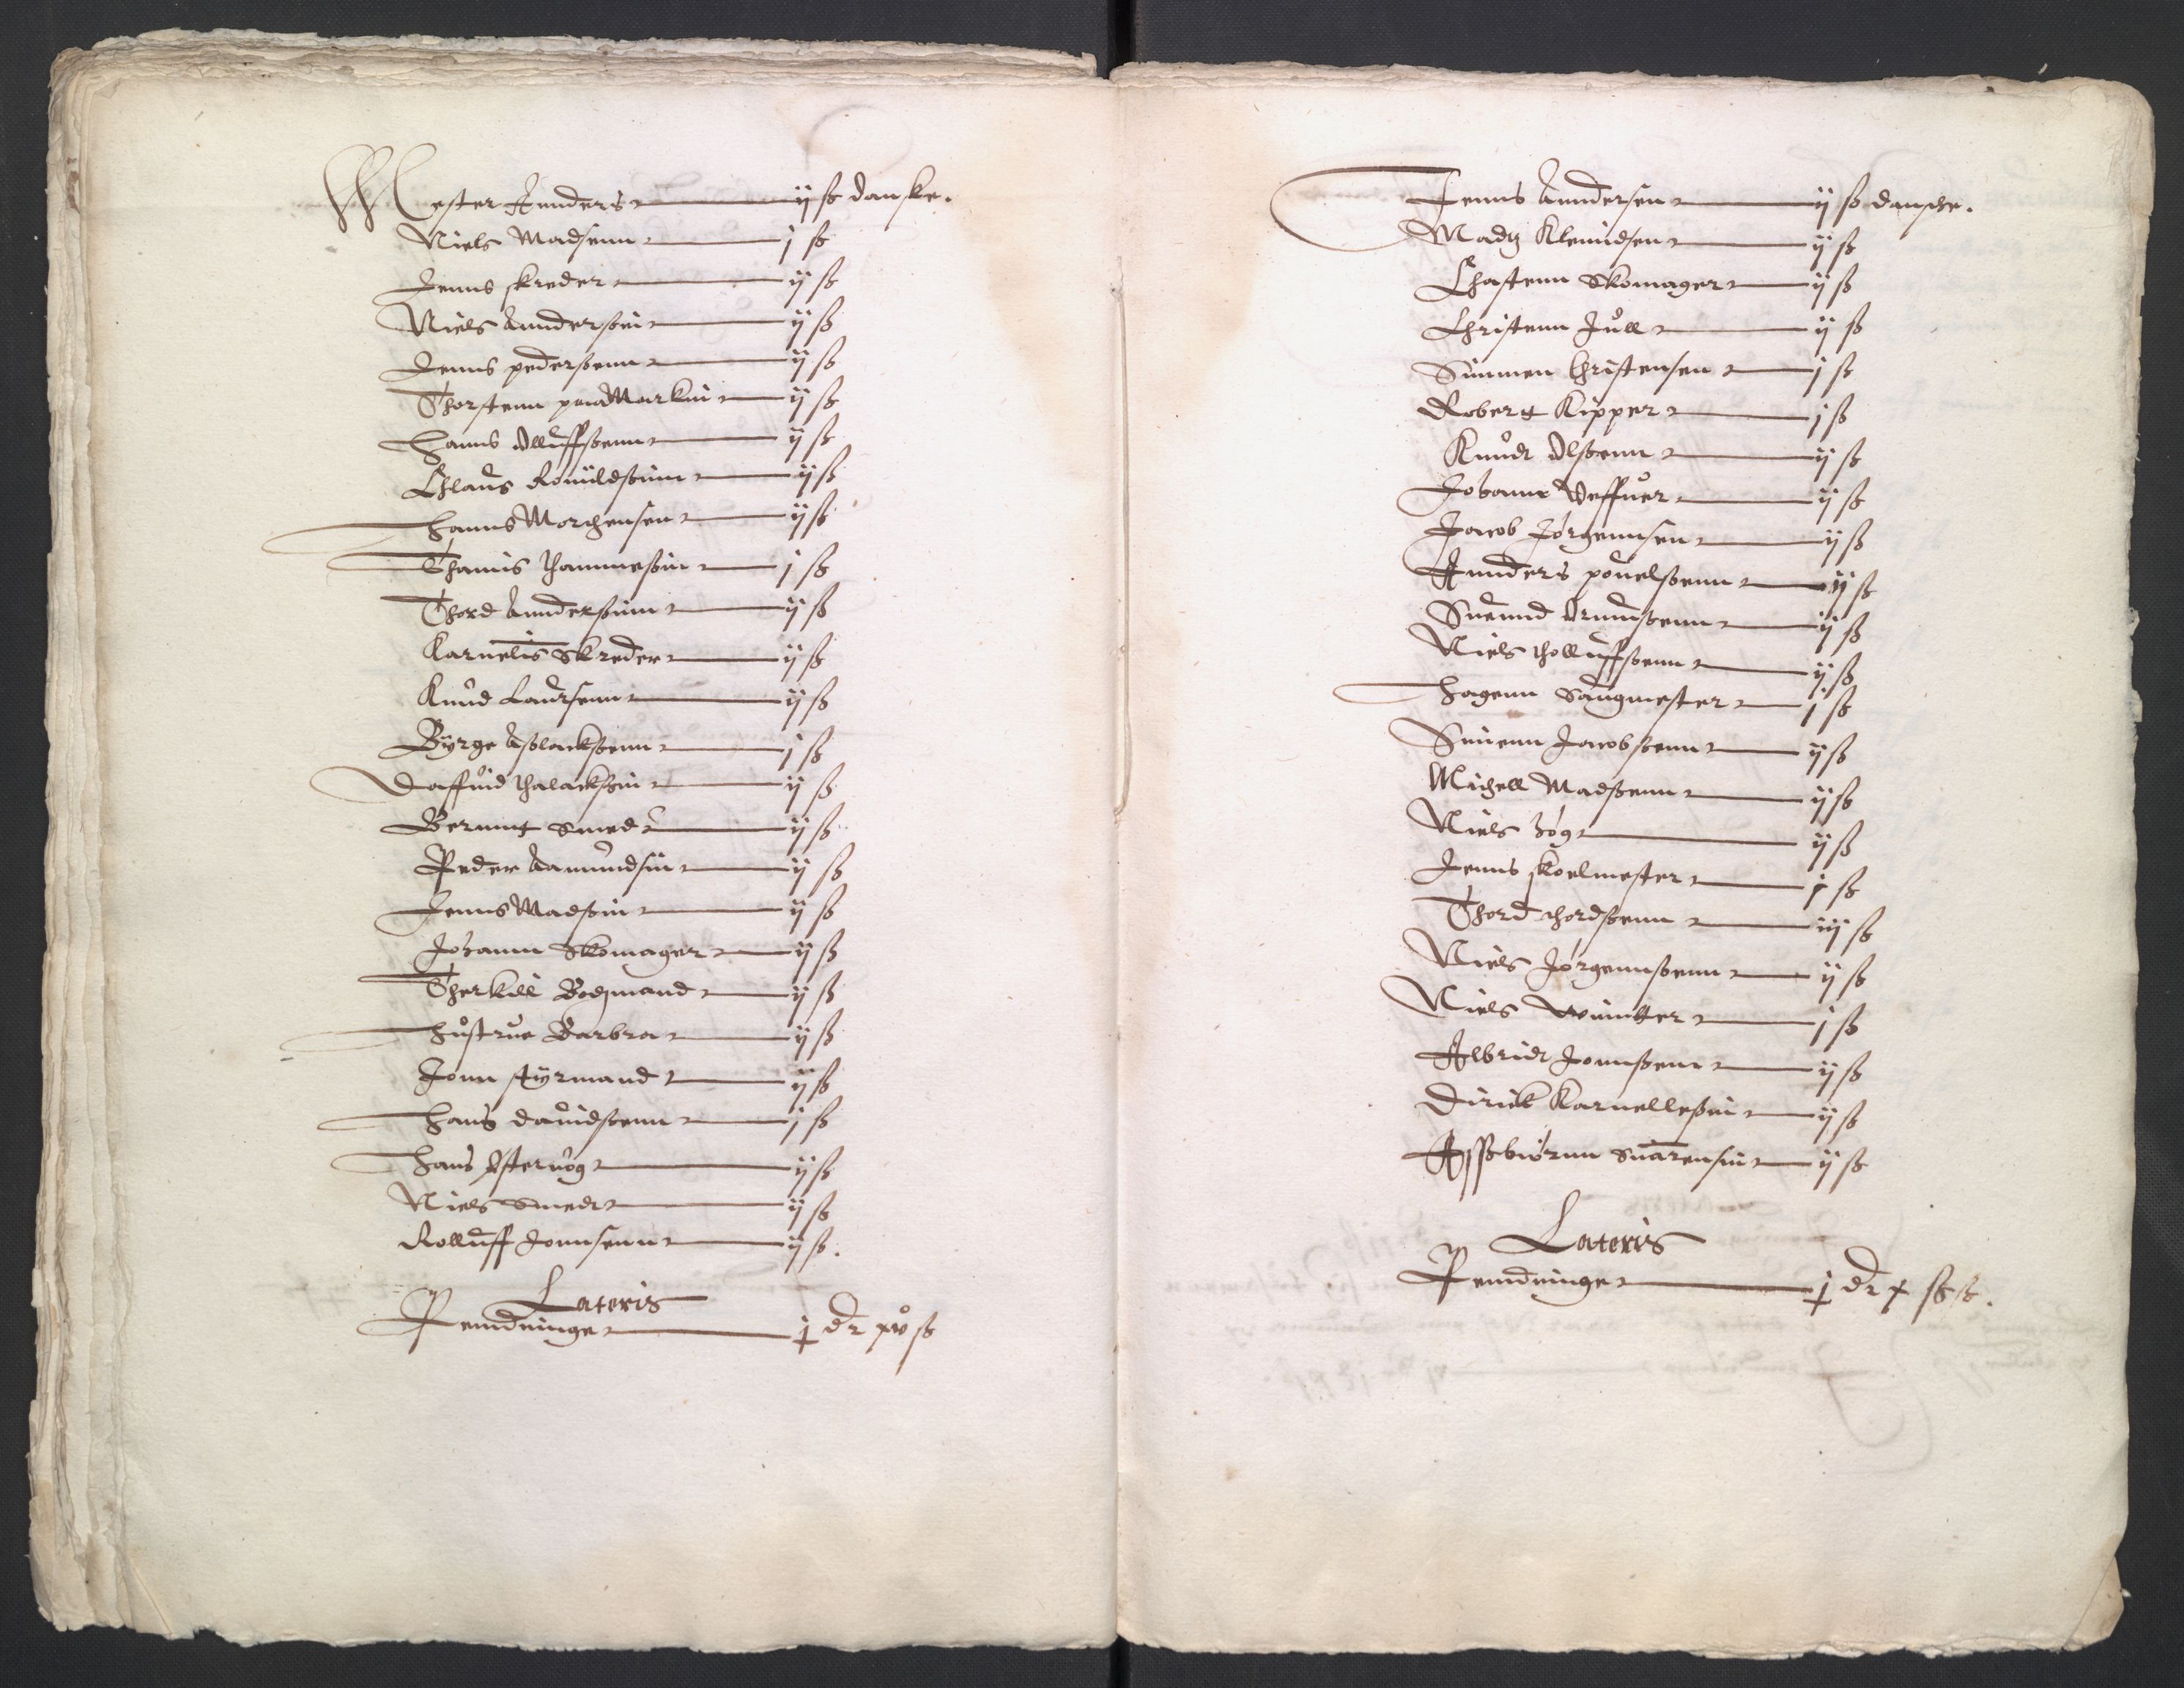 Mester Anders — ij ß danske.
Niels Madsenn — j ß
Jenns skreder — ij ß
Niels Anndersøn — ij ß
Jenns pedersenn — ij ß
Thorstenn — ij ß
Hanns Olluffssenn — ij ß
Chlaus — ij ß
Hanns Morthensen — ij ß
Thamis Thammesøn — j ß
Thord Anndersønn — ij ß
Karnelis Skreder — ij ß
Knud Laursenn — ij ß
Byrge Aslacksenn — j ß
Daffuid thalacksøn — ij ß
Bernnt Smed — ij ß
Peder Aamundsøn — ij ß
Jenns Madsøn — ij ß
Johann Skomager — ij ß
Therkild Bodzmand — ij ß
Hustrue Barbra — ij ß
Jonn styrmand — ij ß
Hans dauidsenn — j ß
Hans — ij ß
Niels Smedt — ij ß
Rolluff Jonnsenn — ij ß.
Lateris
Penndninge — j dr xv ß
Jenns Anndersen — ij ß dansche.
Madz Klemidsen — ij ß
Chastenn Skomager — ij ß
Christenn Jull — ij ß
Simmen Christensen — j ß
Robert Kipper — j ß
Knudt Olsenn — ij ß
Johann Veffuer — ij ß
Jacob Jørgennsen — ij ß
Annders pouelsenn — ij ß
Suennd — ij ß
Niels tholluffsenn — ij ß
Hagenn Sangmester — j ß
Suenn Jacobsenn — ij ß
Michell Madsenn — ij ß
Niels — ij ß
Jenns skoelmester — j ß
Thord thordsenn — iij ß
Niels Jørgennsenn — ij ß
Niels Wintter — j ß
Albridt Jonnsenn — ij ß
Dirick Karnellesøn — ij ß
Assbiørnn — ij ß
Lateris
Penndninge — j dr x ß.